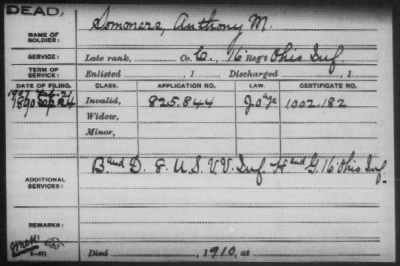 DEAD,
NAME OF SOLDIER: Sommers, Anthony M.
SERVICE: Late rank, Co. C., 16 Reg't Ohio Inf.
TERM OF SERVICE: Enlisted , 1 Discharged , 1
DATE OF FILING. CLASS. APPLICATION NO. LAW. CERTIFICATE NO.
1890 Sep 24 Invalid, 825.844 1002.182
Widow,
Minor,
ADDITIONAL SERVICES: B and D. 8 U.S.V.V. Inf. H and G. 16 Ohio Inf.
REMARKS:
Died , 1910, at